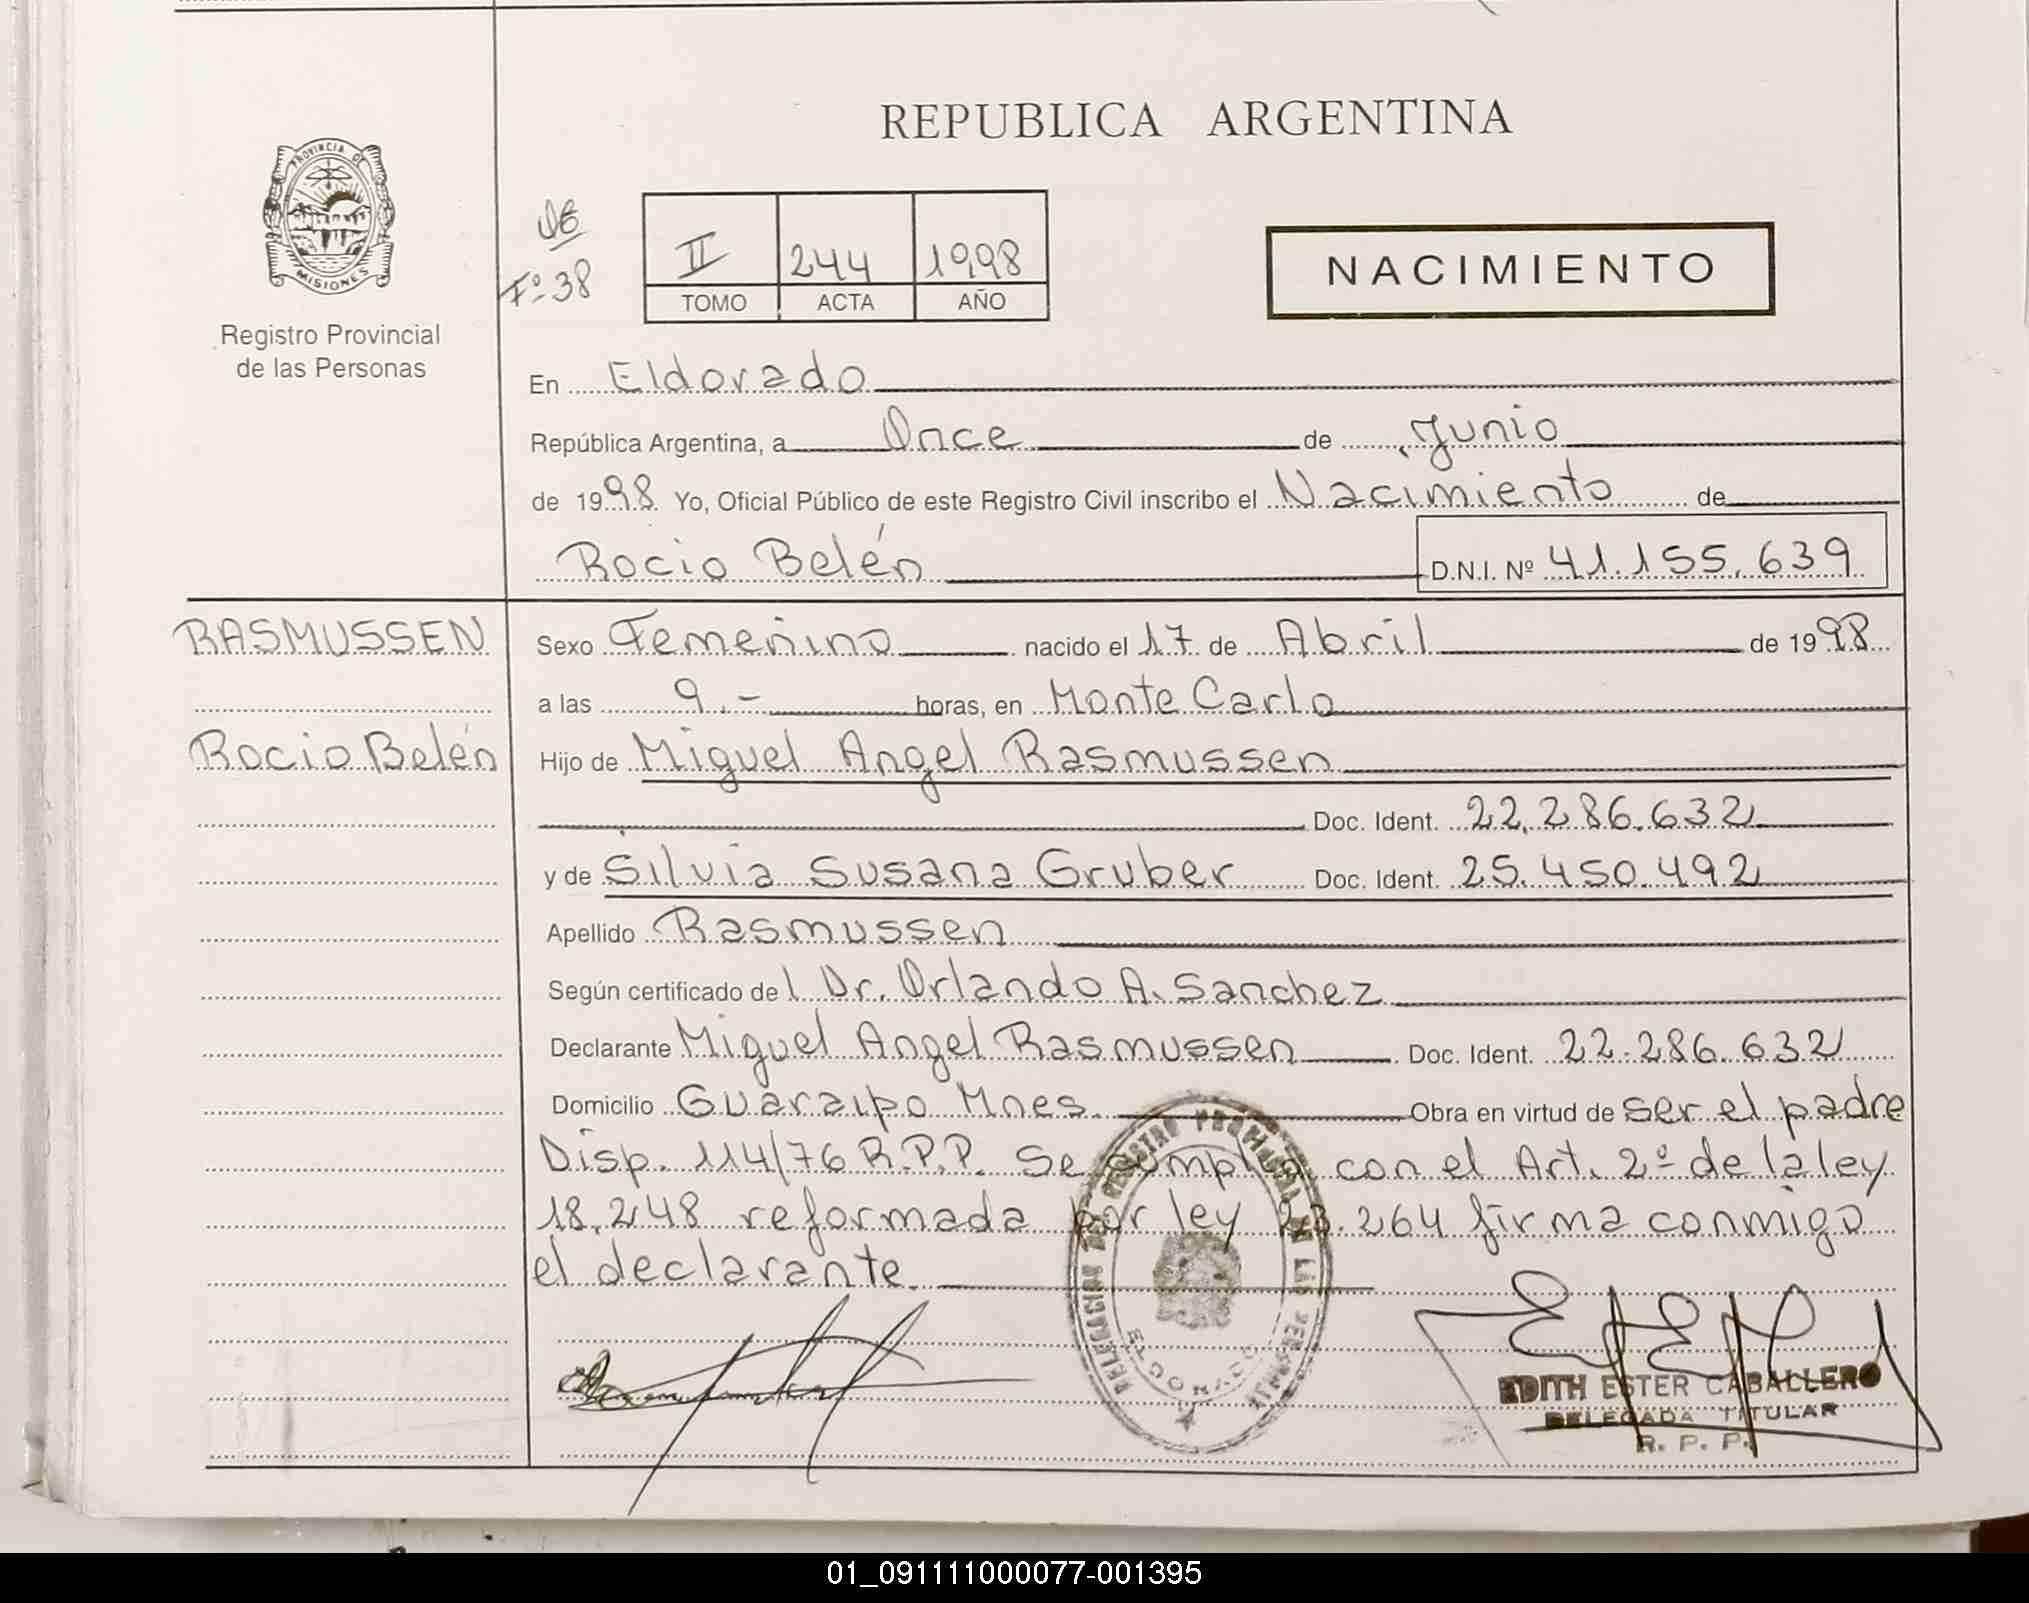 REPUBLICA ARGENTINA
PROVINCIA DE
MISIONES
Registro Provincial
de las Personas
Fº 38
II 244 1998
TOMO ACTA AÑO
NACIMIENTO
En Eldorado
República Argentina, a Once de Junio
de 1998 Yo, Oficial Público de este Registro Civil inscribo el Nacimiento de
Rocio Belén D.N.I. Nº 41.155.639
RASMUSSEN
Rocio Belén
Sexo Femenino nacido el 17 de Abril de 1998
a las 9.- horas, en Monte Carlo
Hijo de Miguel Angel Rasmussen
Doc. Ident. 22.286.632
y de Silvia Susana Gruber Doc. Ident. 25.450.492
Apellido Rasmussen
Según certificado del Dr. Orlando A. Sanchez
Declarante Miguel Angel Rasmussen Doc. Ident. 22.286.632
Domicilio Guaraipo Mnes. Obra en virtud de ser el padre
Disp. 114/76 R.P.P. Se cumple con el Art. 2º de la ley
18.248 reformada por ley 23.264 firma conmigo
el declarante.
DELEGACION DEL REGISTRO PROVINCIAL DE LAS PERSONAS
ELDORADO
EDITH ESTER CABALLERO
DELEGADA TITULAR
R. P. P.
01_091111000077-001395